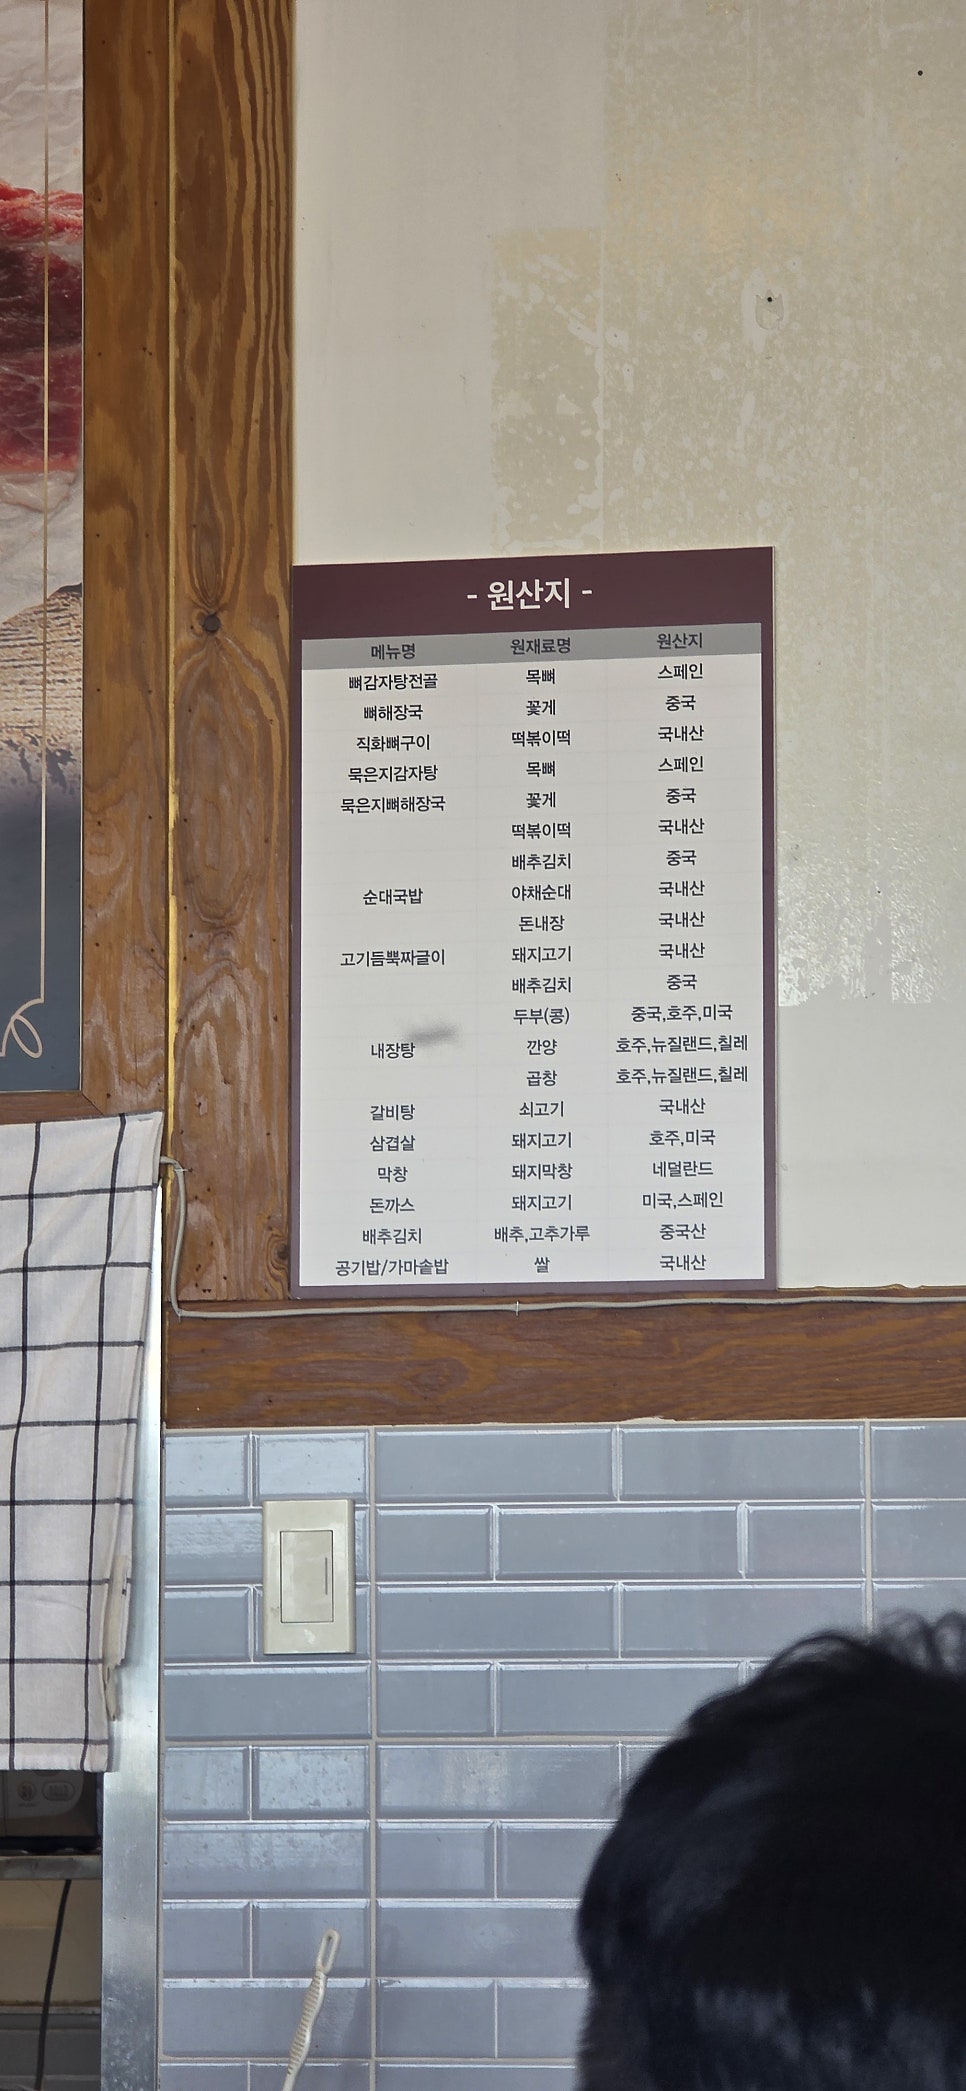 - 원산지 -
메뉴명 원재료명 원산지
뼈감자탕전골 목뼈 스페인
뼈해장국 꽃게 중국
직화뼈구이 떡볶이떡 국내산
묵은지감자탕 목뼈 스페인
묵은지뼈해장국 꽃게 중국
떡볶이떡 국내산
배추김치 중국
순대국밥 야채순대 국내산
돈내장 국내산
고기듬뿍짜글이 돼지고기 국내산
배추김치 중국
두부(콩) 중국,호주,미국
내장탕 깐양 호주,뉴질랜드,칠레
곱창 호주,뉴질랜드,칠레
갈비탕 쇠고기 국내산
삼겹살 돼지고기 호주,미국
막창 돼지막창 네덜란드
돈까스 돼지고기 미국,스페인
배추김치 배추,고추가루 중국산
공기밥/가마솥밥 쌀 국내산